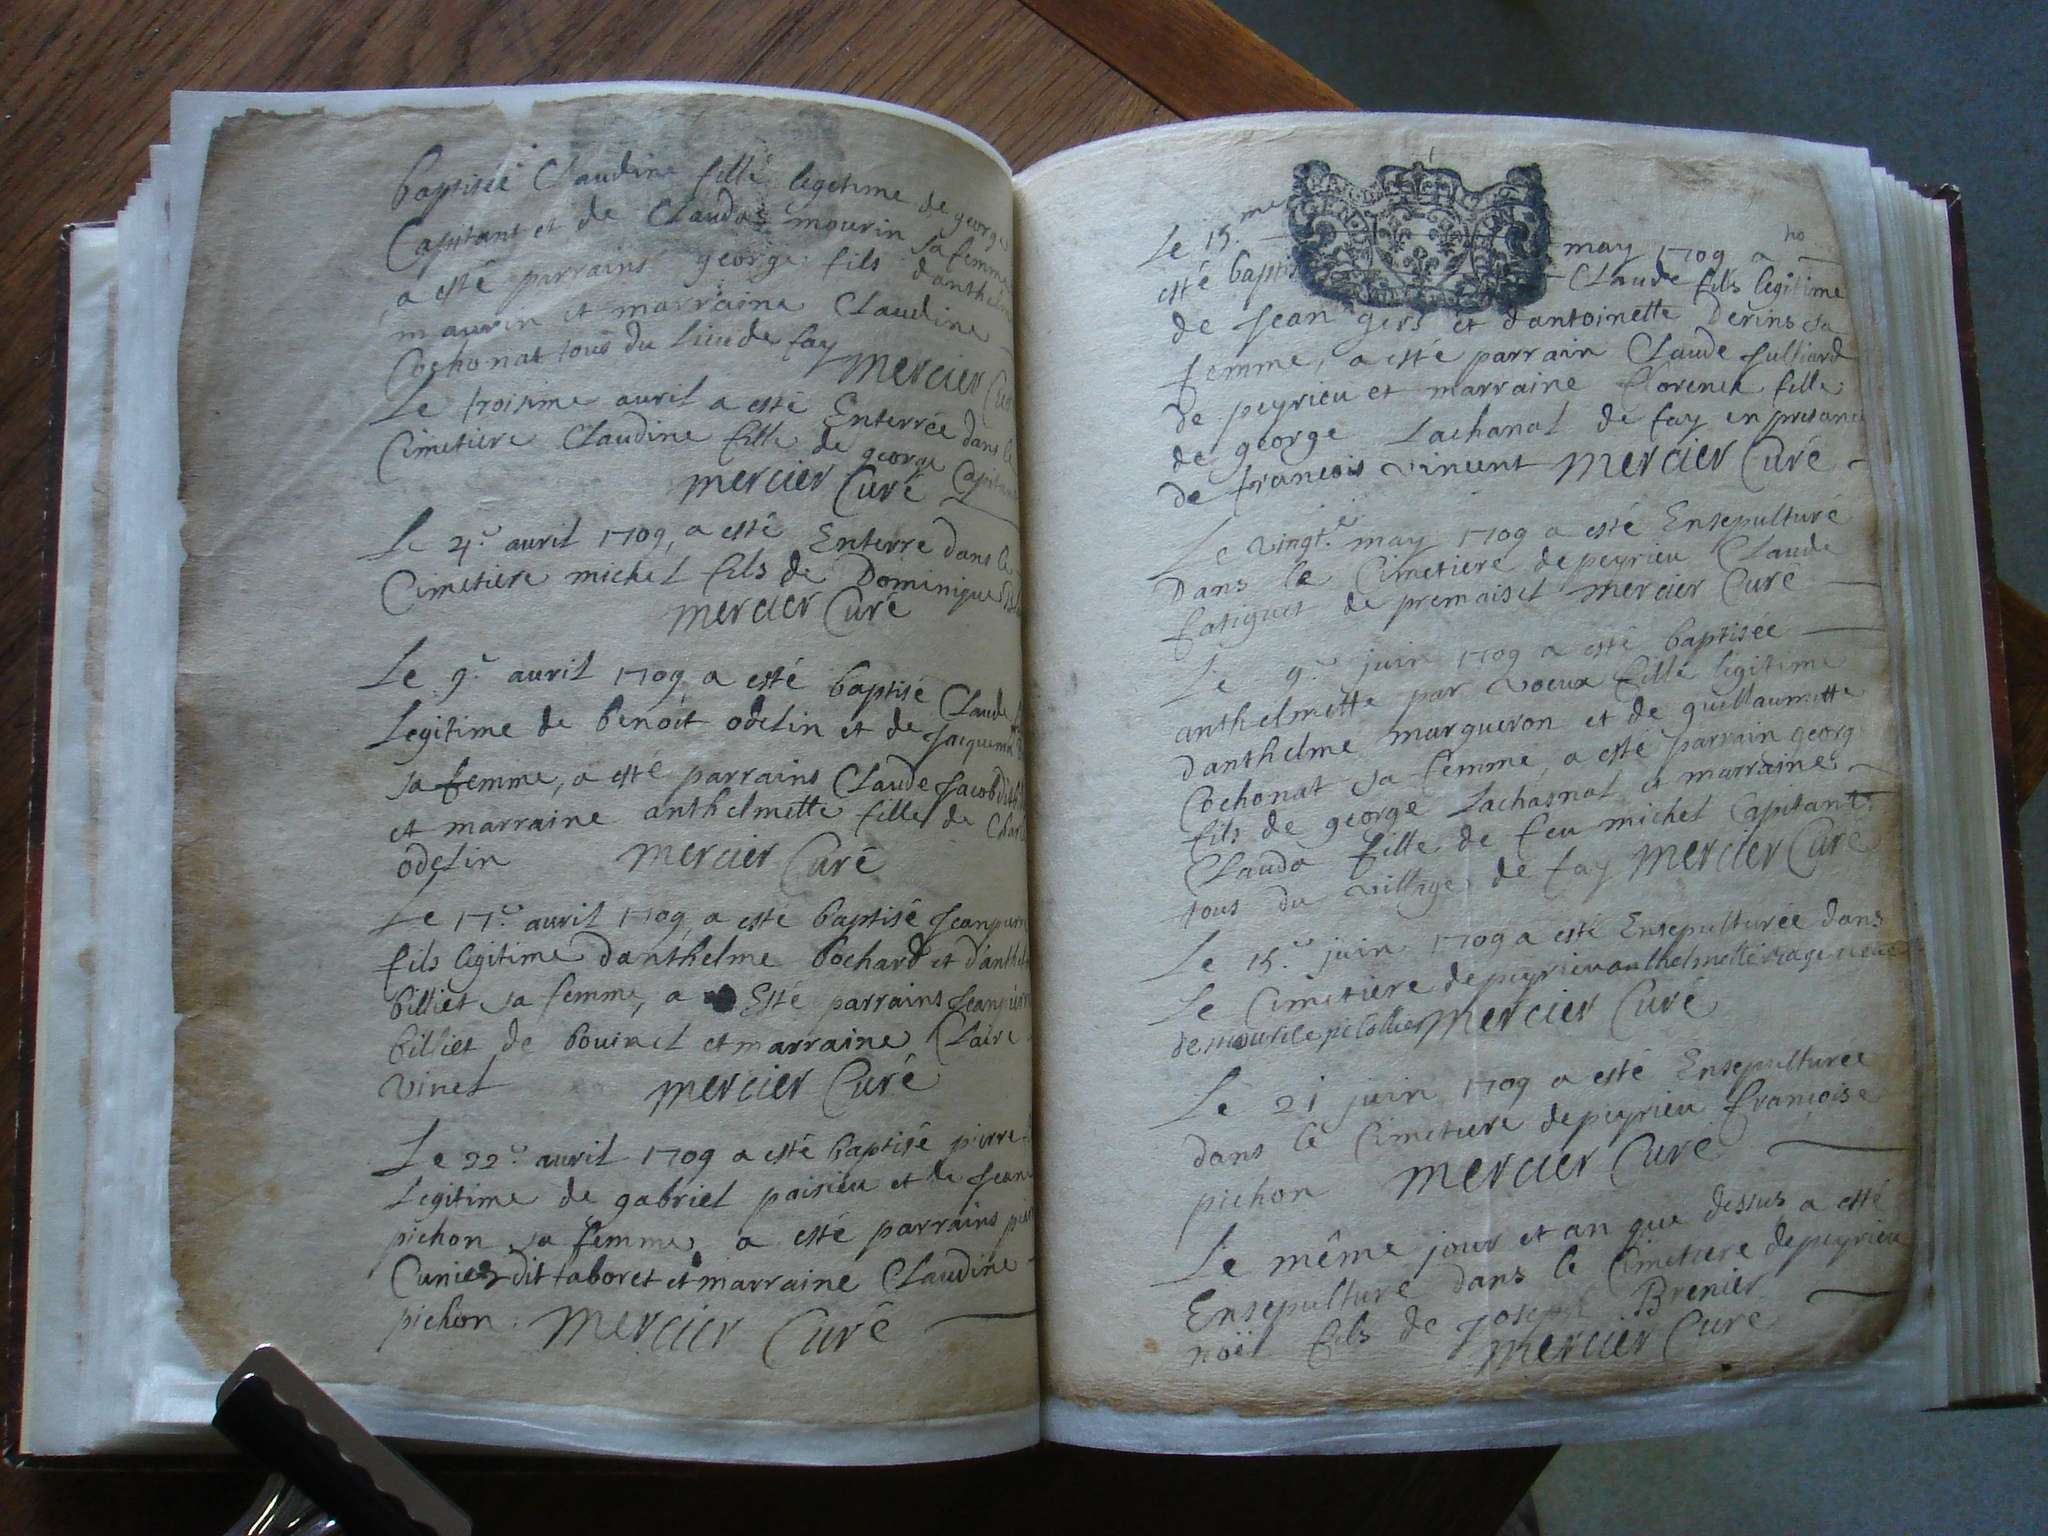 baptisée Claudine fille legitime de george
Capitant et de Clauda mourin sa femme
a esté parrains george fils danthelme
maurin et marraine Claudine
Cochonat tous du lieu de fay
mercier Curé
Le troisime auril a esté Enterrée dans le
Cimetiere Claudine fille de george Capitant
mercier Curé
Le 4.e auril 1709, a esté Enterré dans le
Cimetiere michel fils de Dominique
mercier Curé
Le 9.e auril 1709 a esté baptisé Claude
Legitime de benoit odelin et de Jacquem
sa femme, a esté parrains Claude Jacob dit
et marraine anthelmette fille de Charl
odelin mercier Curé
Le 17.e auril 1709, a esté baptisé Jeanpierre
fils legitime danthelme bochard et danthel
billiet sa femme, a Esté parrains Jeanpierre
billiet de bouinel et marraine Claire
vinet mercier Curé
Le 22.e auril 1709 a esté baptisé pierre
Legitime de gabriel pairieu et de Jeanne
pichon sa femme, a esté parrains pierre
Cunier dit taboret et marraine Claudine
pichon. mercier Curé
GEN
Le 15.me may 1709 a
esté baptis Claude fils legitime
de Jean gers et dantoinette Derins sa
femme, a esté parrain Claude Julliard
de peyrieu et marraine florence fille
de george Lachanal de fay en presance
de francois vincent mercier Curé
Le vingt.e may 1709 a esté Ensepulturé
Dans le Cimetiere de peyrieu Claude
fatiguet de premaisel mercier Curé
Le 9.e juin 1709 a esté baptisée
anthelmette par voeux fille legitime
danthelme margueron et de guillaumette
Cochonat sa femme, a esté parrain george
fils de george Lachasnal et marraine
Clauda fille de feu michel Capitant
tous du village de fay mercier Curé
Le 15.e juin 1709 a esté Ensepulturée dans
Le Cimetiere de peyrieu anthelmette
mercier Curé
Le 21 juin 1709 a esté Ensepulturée
dans le Cimetiere de peyrieu françoise
pichon mercier Curé
Le même jour et an que dessus a esté
Ensepulturé dans le Cimetiere de peyrieu
noïl fils de Joseph Brenier
mercier Curé